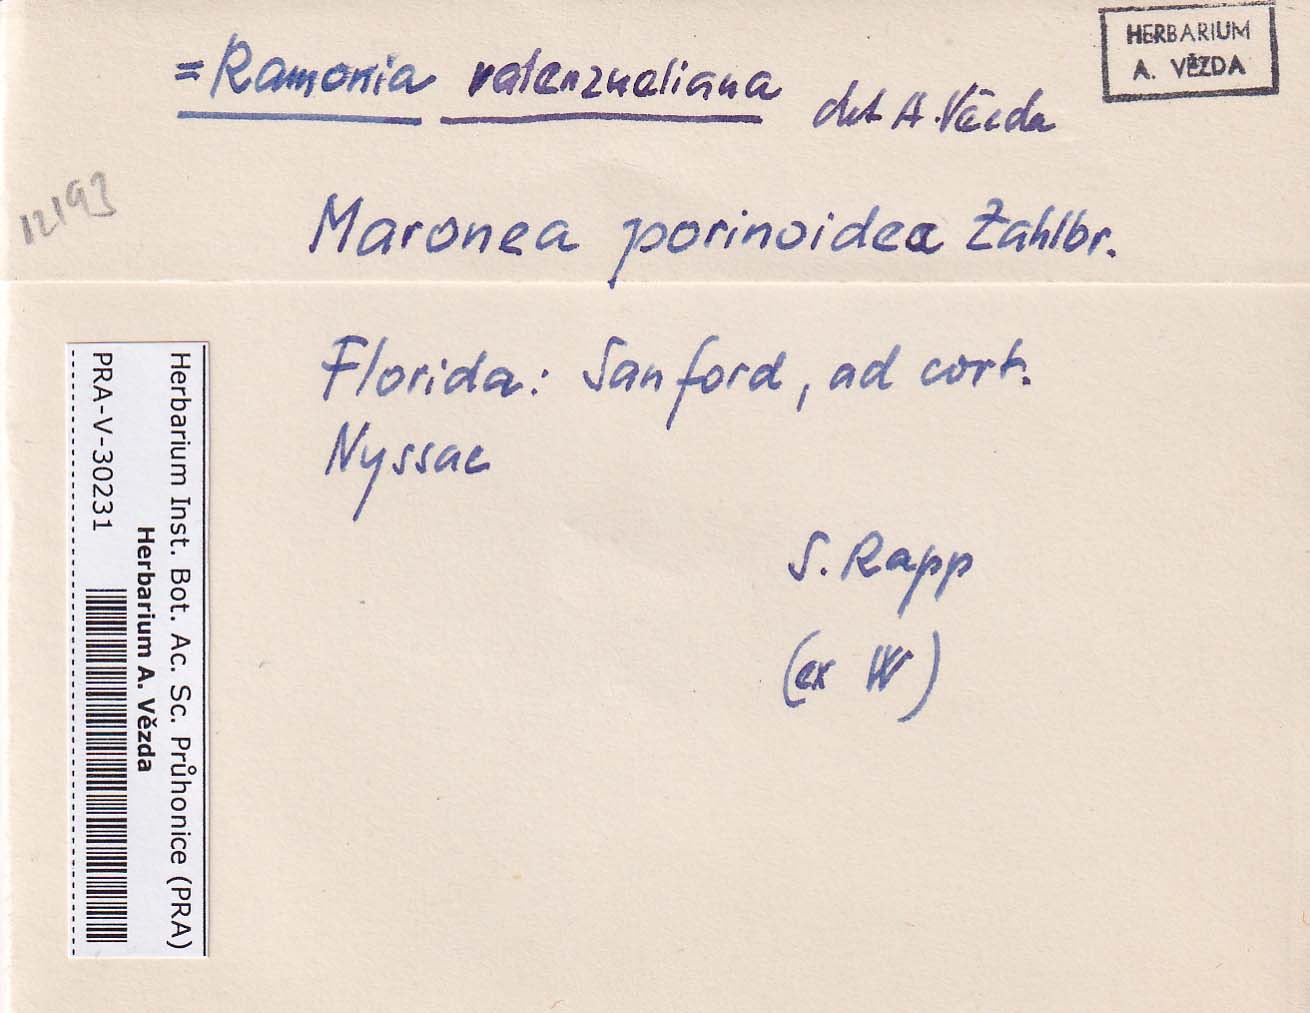 HERBARIUM
A. VĚZDA
= Ramonia valenzueliana det A. Vězda
12193
Maronea porinoidea Zahlbr.
Florida: Sanford, ad cort.
Nyssae
S. Rapp
(ex W)
Herbarium Inst. Bot. Ac. Sc. Průhonice (PRA)
Herbarium A. Vězda
PRA-V-30231